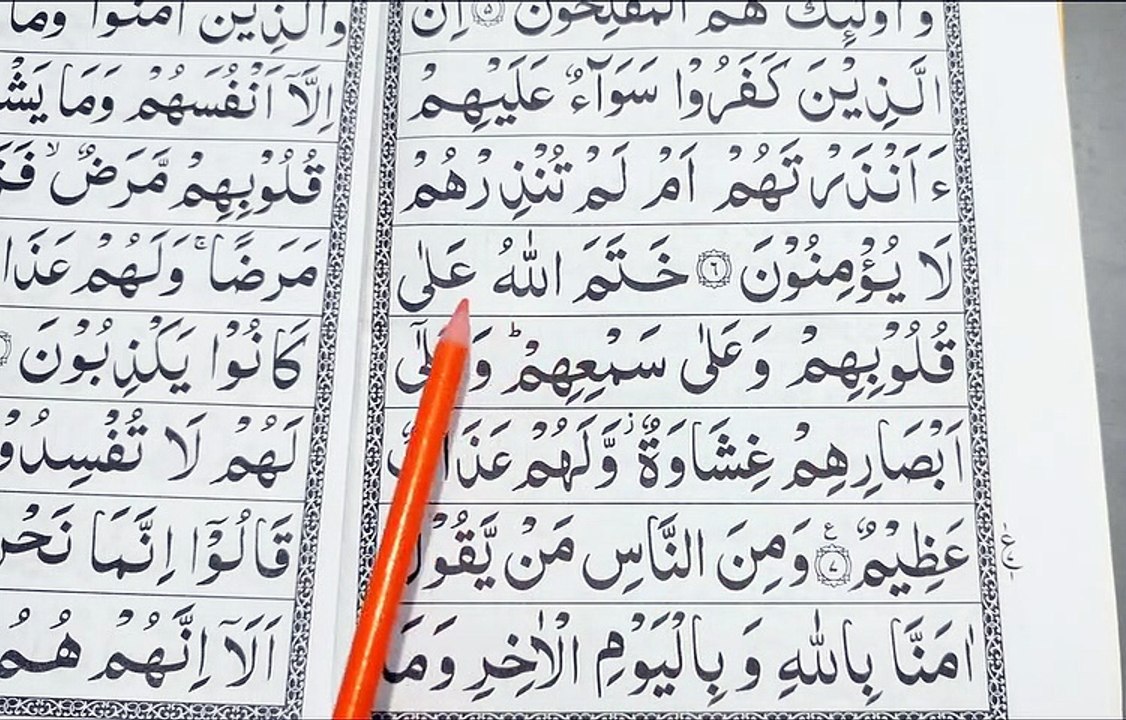 وَاُولٰٓئِكَ هُمُ الْمُفْلِحُوْنَ ۝٥ اِنَّ
الَّذِيْنَ كَفَرُوْا سَوَآءٌ عَلَيْهِمْ
ءَاَنْذَرْتَهُمْ اَمْ لَمْ تُنْذِرْهُمْ
لَا يُؤْمِنُوْنَ ۝٦ خَتَمَ اللّٰهُ عَلٰى
قُلُوْبِهِمْ وَعَلٰى سَمْعِهِمْ ؕ
اَبْصَارِهِمْ غِشَاوَةٌ ز وَّلَهُمْ
عَظِيْمٌ ۝٧ ع وَمِنَ النَّاسِ مَنْ يَّقُوْلُ
اٰمَنَّا بِاللّٰهِ وَبِالْيَوْمِ الْاٰخِرِ وَمَا
وَالَّذِيْنَ اٰمَنُوْا وَمَا
اِلَّآ اَنْفُسَهُمْ وَمَا
قُلُوْبِهِمْ مَّرَضٌ ۙ
مَرَضًا ۚ وَلَهُمْ
كَانُوْا يَكْذِبُوْنَ
لَهُمْ لَا
قَالُوْٓا اِنَّمَا
اَلَآ اِنَّهُمْ هُمُ